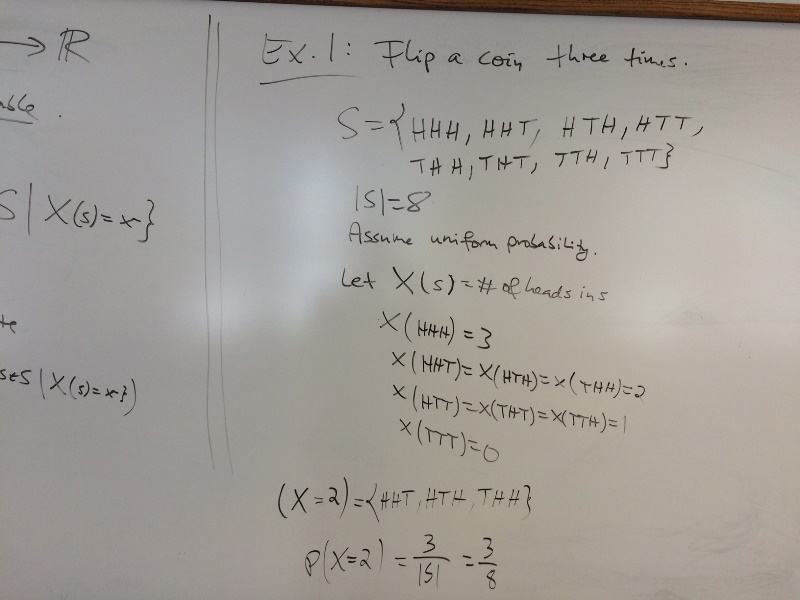 → ℝ
able.
S | X(s)=x}
te
s∈S | X(s)=x})
Ex. 1: Flip a coin three times.
S={HHH, HHT, HTH, HTT,
THH, THT, TTH, TTT}
|S|=8
Assume uniform probability.
Let X(s) = # of heads in s
X(HHH) = 3
X(HHT)=X(HTH)=X(THH)=2
X(HTT)=X(THT)=X(TTH)=1
X(TTT)=0
(X=2)={HHT, HTH, THH}
P(X=2) = 3/|S| = 3/8